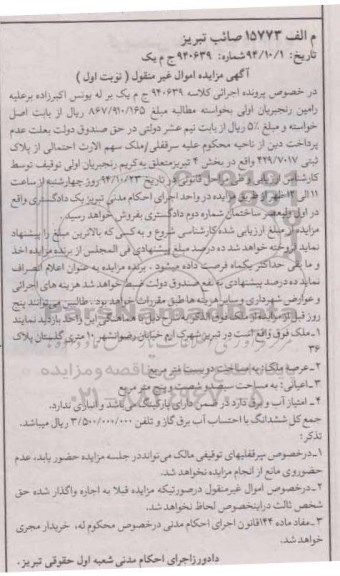 م الف ۱۵۷۷۳ صائب تبریز
تاریخ: ۹۴/۱۰/۱ شماره: ۹۴۰۶۳۹ ج م یک
آگهی مزایده اموال غیر منقول ( نوبت اول )
در خصوص پرونده اجرائی کلاسه ۹۴۰۶۳۹ ج م یک بر له یونس اکبرزاده برعلیه
رامین رنجبریان اولی بخواسته مطالبه مبلغ ۸۶۷/۹۱۰/۱۶۵ ریال از بابت اصل
خواسته و مبلغ ۵٪ ریال از بابت نیم عشر دولتی در حق صندوق دولت بعلت عدم
پرداخت دین از ناحیه محکوم علیه سرقفلی/ملک سهم الارث احتمالی از پلاک
ثبتی ۴۲۹/۷۰۱۷ واقع در بخش ۴ تبریز متعلق به کریم رنجبریان اولی توقیف توسط
کارشناس ارزیابی و طی مراحل قانونی در تاریخ ۹۴/۱۰/۲۳ روز چهارشنبه از ساعت
۱۱ الی ۱۲ ظهر از طریق مزایده در واحد اجرای احکام مدنی تبریز یک دادگستری واقع
در اول ولیعصر ساختمان شماره دوم دادگستری بفروش خواهد رسید.
مزایده از مبلغ ارزیابی شده کارشناسی شروع و به کسی که بالاترین مبلغ را پیشنهاد
نماید فروخته خواهد شد ده درصد مبلغ پیشنهادی فی المجلس از برنده مزایده اخذ
و ما بقی حداکثر یکماه فرصت داده میشود . برنده مزایده به عنوان اعلام انصراف
نماید ده درصد پیشنهادی به نفع صندوق دولت ضبط خواهد شد هزینه های اجرائی
و عوارض شهرداری و سایر هزینه ها طبق مقررات خواهد بود . طالبین می توانند پنج
روز قبل از مزایده از ملک فوق الذکر
۱_ملک فوق واقع است در تبریز شهرک ارم خیابان رضوانشهر ۱۰ متری گلستان پلاک
۳۶
۲_عرصه ملک: به مساحت دویست متر مربع
۳_اعیانی: به مساحت سیصد و شصت و پنج متر مربع
۴_ امتیاز آب و برق دارد در ضمن دارای پارکینگ می باشد و انباری ندارد.
جمع کل ششدانگ با احتساب آب برق گاز و تلفن ۳/۵۰۰/۰۰۰/۰۰۰ ریال میباشد.
تذکر:
۱_درخصوص سرقفلیهای توقیفی مالک می تواند در جلسه مزایده حضور یابد، عدم
حضور وی مانع از انجام مزایده نخواهد شد.
۲_درخصوص اموال غیرمنقول درصورتیکه مزایده قبلا به اجاره واگذار شده حق
شخص ثالث دراینخصوص لحاظ نخواهد شد.
۳_مفاد ماده ۱۴۴ قانون اجرای احکام مدنی درخصوص محکوم له، خریدار مجری
خواهد شد.
دادورز اجرای احکام مدنی شعبه اول حقوقی تبریز.